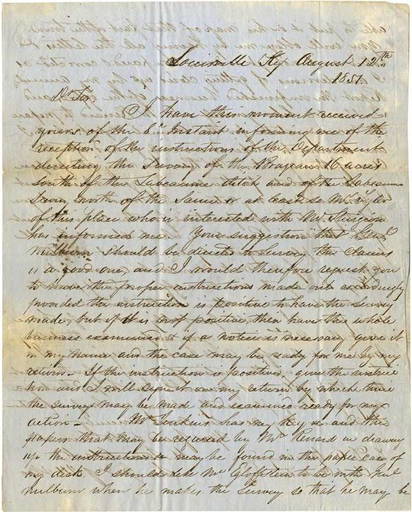 Louisville Ky August 12th
1851.
Dr Sir
I have this moment received
yours of the 6th instant informing me of the
reception of the instructions of the Department
directing the Survey of the Brazeau 16 acres
South of the Labeaume ditch and of the Labeaume
Survey north of the Same or at least Mr
of this place who is interested with Mr
has informed me. Your suggestion that Genl
Milburn should be directed to Survey the Claims
is a good one, and I would therefore request you
to have the proper instructions made out accordingly
provided the instruction is positive to have the survey
made, but if it is not positive then have the whole
business examined & if a notice is necessary give it
in my name and the case may be ready for me on my
return. If the instruction is positive, give the notice
now and I will sign it on my return by which time
the survey may be made and examined ready for my
action - Mr has my Key and the
papers that may be required by Mr Renard in drawing
up the instructions may be found in the paper case of
my desk I should like Mr to be with Genl
Milburn when he makes the Survey so that he may be